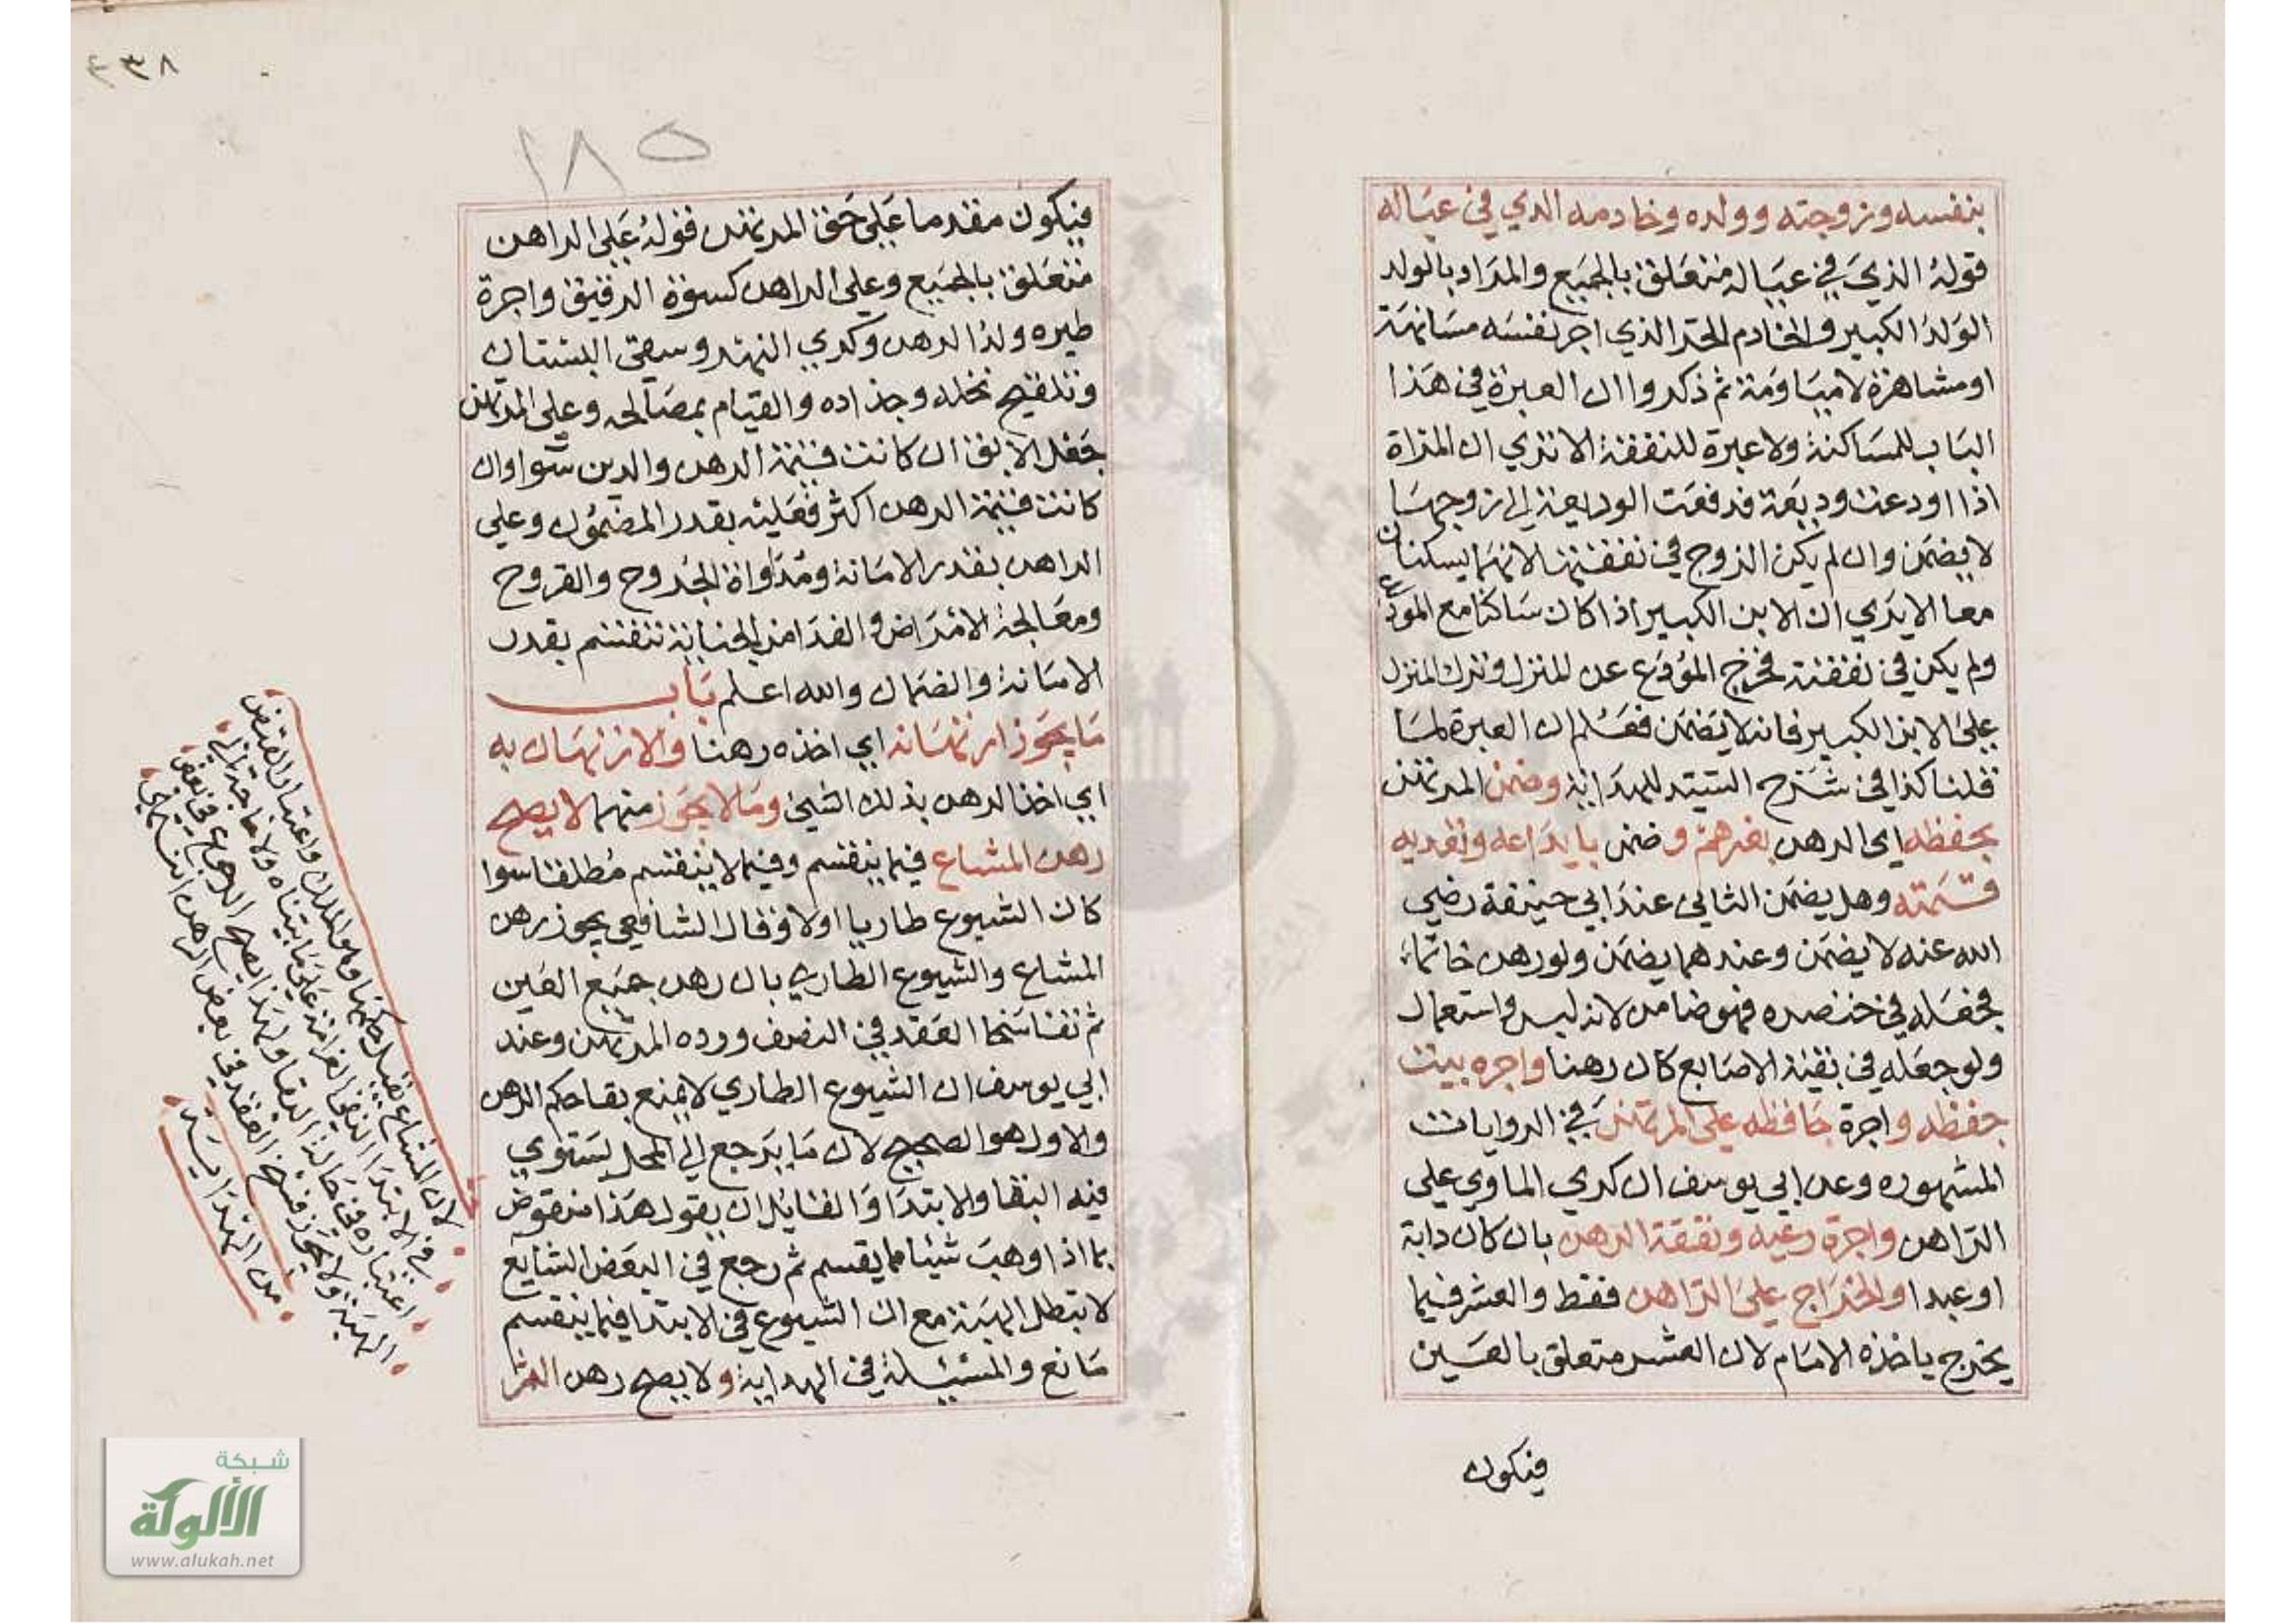 بنفسه وزوجته وولده وخادمه الذي في عياله
قوله الذي في عياله متعلق بالجميع والمراد بالولد
الولد الكبير والخادم الحر الذي اجر نفسه مسانهة
او مشاهرة لامياومة ثم ذكروا ان العبرة في هذا
الباب للمساكنة ولا عبرة للنفقة الا تري ان المراة
اذا اودعت وديعة فدفعت الوديعة الي زوجها
لا يضمن وان لم يكن الزوج في نفقتها لانهما يسكنان
معا الا يري ان الابن الكبير اذا كان ساكنا مع المودع
ولم يكن في نفقته فخرج المودع عن المنزل وترك المنزل
علي الابن الكبير فانه لا يضمن فعلم ان العبرة لما
قلنا كذا في شرح السيد للهداية وضمن المرتهن
بحفظه اي الرهن بغيرهم وضمن بايداعه وتعديه
قيمته وهل يضمن الثاني عند ابي حنيفة رضي
الله عنه لا يضمن وعندهما يضمن ولو رهن خاتما
فجعله في خنصره فهو ضامن لانه لبس واستعمال
ولو جعله في بقية الاصابع كان رهنا واجره بيت
حفظه واجرة حافظه علي المرتهن في الروايات
المشهوره وعن ابي يوسف ان كري الماوي علي
الراهن واجرة رعيه ونفقة الرهن بان كان دابة
او عبدا والخراج علي الراهن فقط والعشر فيما
يخرج ياخذه الامام لان العشر متعلق بالعين
فيكون
٢٣٨
١٨٥
فيكون مقدما علي حق المرتهن فقوله علي الراهن
متعلق بالجميع وعلي الراهن كسوة الرقيق واجرة
ظيره ولد الرهن وكري النهر وسقي البستان
وتلقيح نخله وجذاده والقيام بمصالحه وعلي المرتهن
جعل الابق ان كانت قيمة الرهن والدين سوا وان
كانت قيمة الرهن اكثر فعليه بقدر المضمون وعلي
الراهن بقدر الامانة ومداواة الجروح والقروح
ومعالجة الامراض والفدا من الجناية تنقسم بقدر
الامانة والضمان والله اعلم باب
ما يجوز ارتهانه اي اخذه رهنا والارتهان به
اي اخذ الرهن بذلك الشيئ وما لا يجوز منهما لا يصح
رهن المشاع فيما ينقسم وفيما لا ينقسم مطلقا سوا
كان الشيوع طاريا اولا وقال الشافعي يجوز رهن
المشاع والشيوع الطاري بان رهن جميع العين
ثم تفاسخا العقد في النصف ورده المرتهن وعند
ابي يوسف ان الشيوع الطاري لا يمنع بقا حكم الرهن
والاول هو الصحيح لان ما يرجع الي المحل يستوي
فيه البقا والابتدا والقايل ان يقول هذا منقوض
بما اذا وهب شيئا مما يقسم ثم رجع في البعض الشايع
لا تبطل الهبة مع ان الشيوع في الابتدا فيما ينقسم
مانع والمسئيلة في الهداية ولا يصح رهن الثمر
لان المشاع يقبل حكمها وهو الملك واعتبار القبض
في الابتدا لنفي الغرامة علي ما بيناه ولا حاجة الي
اعتباره في حالة البقا ولهذا يصح الرجوع في بعض
الهبة ولا يجوز فسخ العقد في بعض الرهن انتهي
من الهداية
شبكة
الألوكة
www.alukah.net